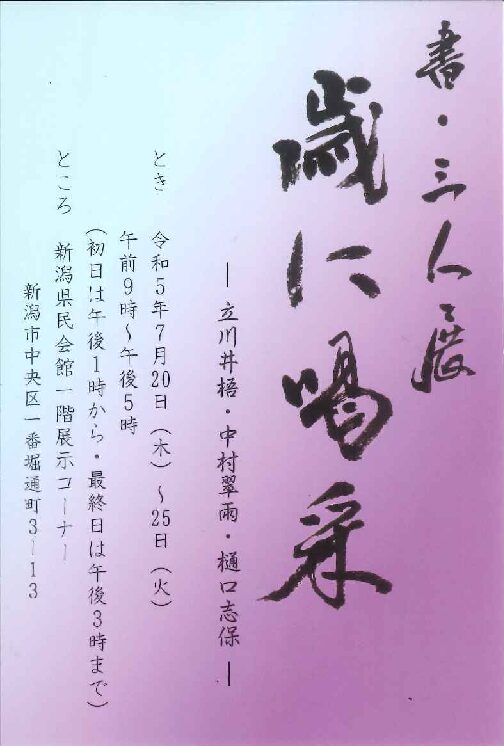 書・三人展
歳に喝采
― 立川井梧・中村翠雨・樋口志保 ―
とき 令和5年7月20日（木）～25日（火）
午前9時～午後5時
（初日は午後1時から・最終日は午後3時まで）
ところ 新潟県民会館一階展示コーナー
新潟市中央区一番堀通町3－13